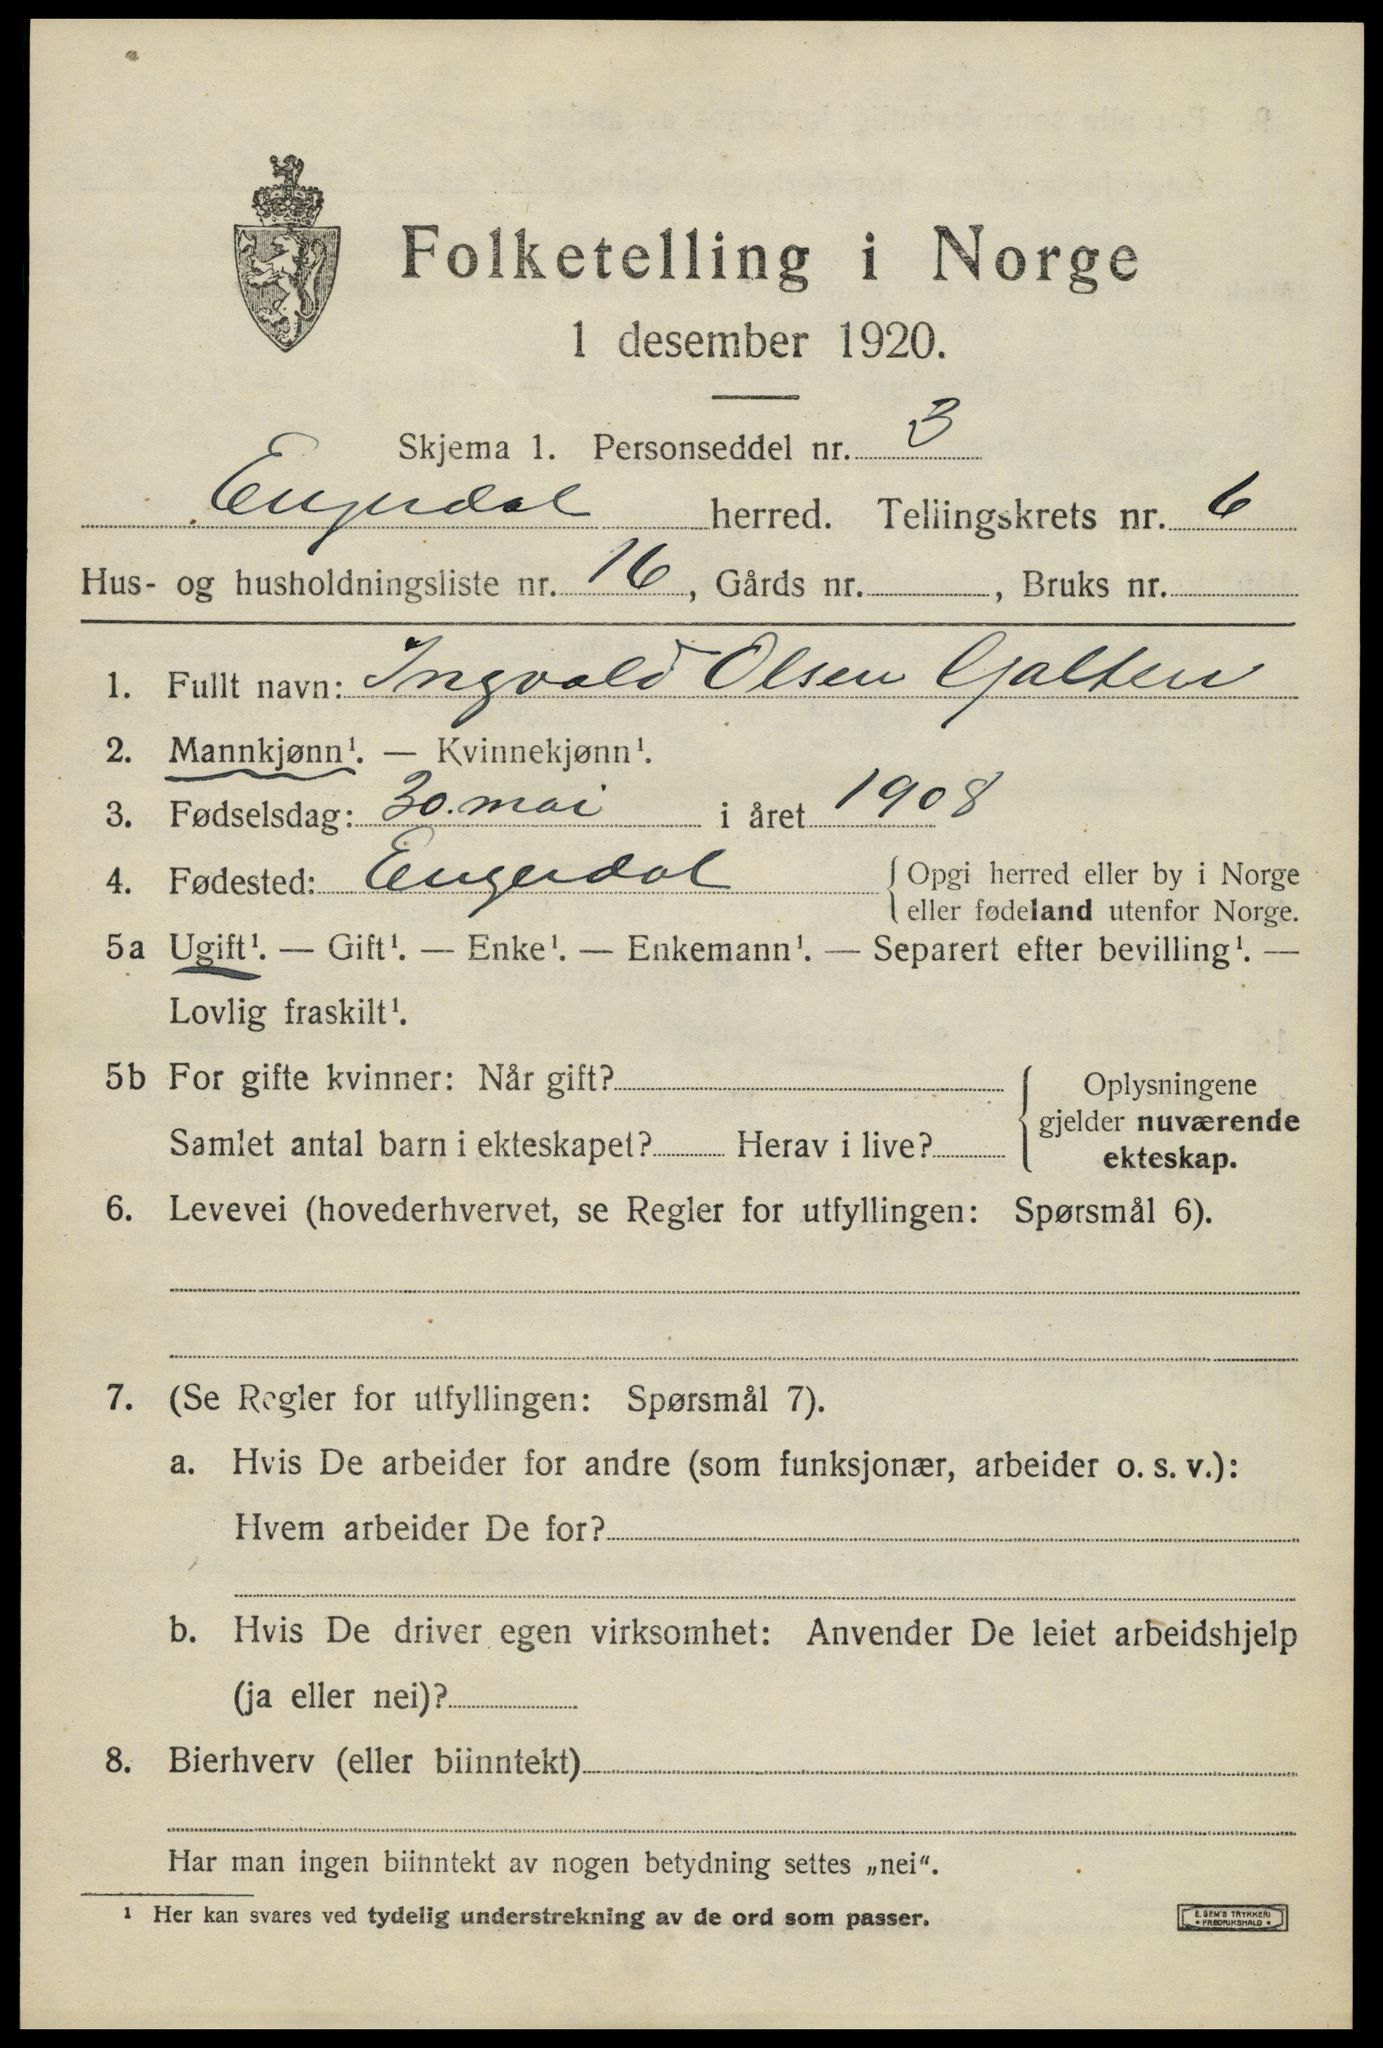 Folketelling i Norge
1 desember 1920.
Skjema 1. Personseddel nr. 3
Engerdal herred. Tellingskrets nr. 6
Hus- og husholdningsliste nr. 16, Gårds nr. , Bruks nr.
1. Fullt navn: Ingvald Olsen Galten
2. Mannkjønn¹. — Kvinnekjønn¹.
3. Fødselsdag: 30. mai i året 1908
4. Fødested: Engerdal {Opgi herred eller by i Norge
eller fødeland utenfor Norge.
5a Ugift¹. — Gift¹. — Enke¹. — Enkemann¹. — Separert efter bevilling¹. —
Lovlig fraskilt¹.
5b For gifte kvinner: Når gift?
Samlet antal barn i ekteskapet? Herav i live?
Oplysningene
gjelder nuværende
ekteskap.
6. Levevei (hovederhvervet, se Regler for utfyllingen: Spørsmål 6).
7. (Se Regler for utfyllingen: Spørsmål 7).
a. Hvis De arbeider for andre (som funksjonær, arbeider o. s. v.):
Hvem arbeider De for?
b. Hvis De driver egen virksomhet: Anvender De leiet arbeidshjelp
(ja eller nei)?
8. Bierhverv (eller biinntekt)
Har man ingen biinntekt av nogen betydning settes „nei“.
¹ Her kan svares ved tydelig understrekning av de ord som passer.
E. SEM'S TRYKKERI
• FREDRIKSHALD •